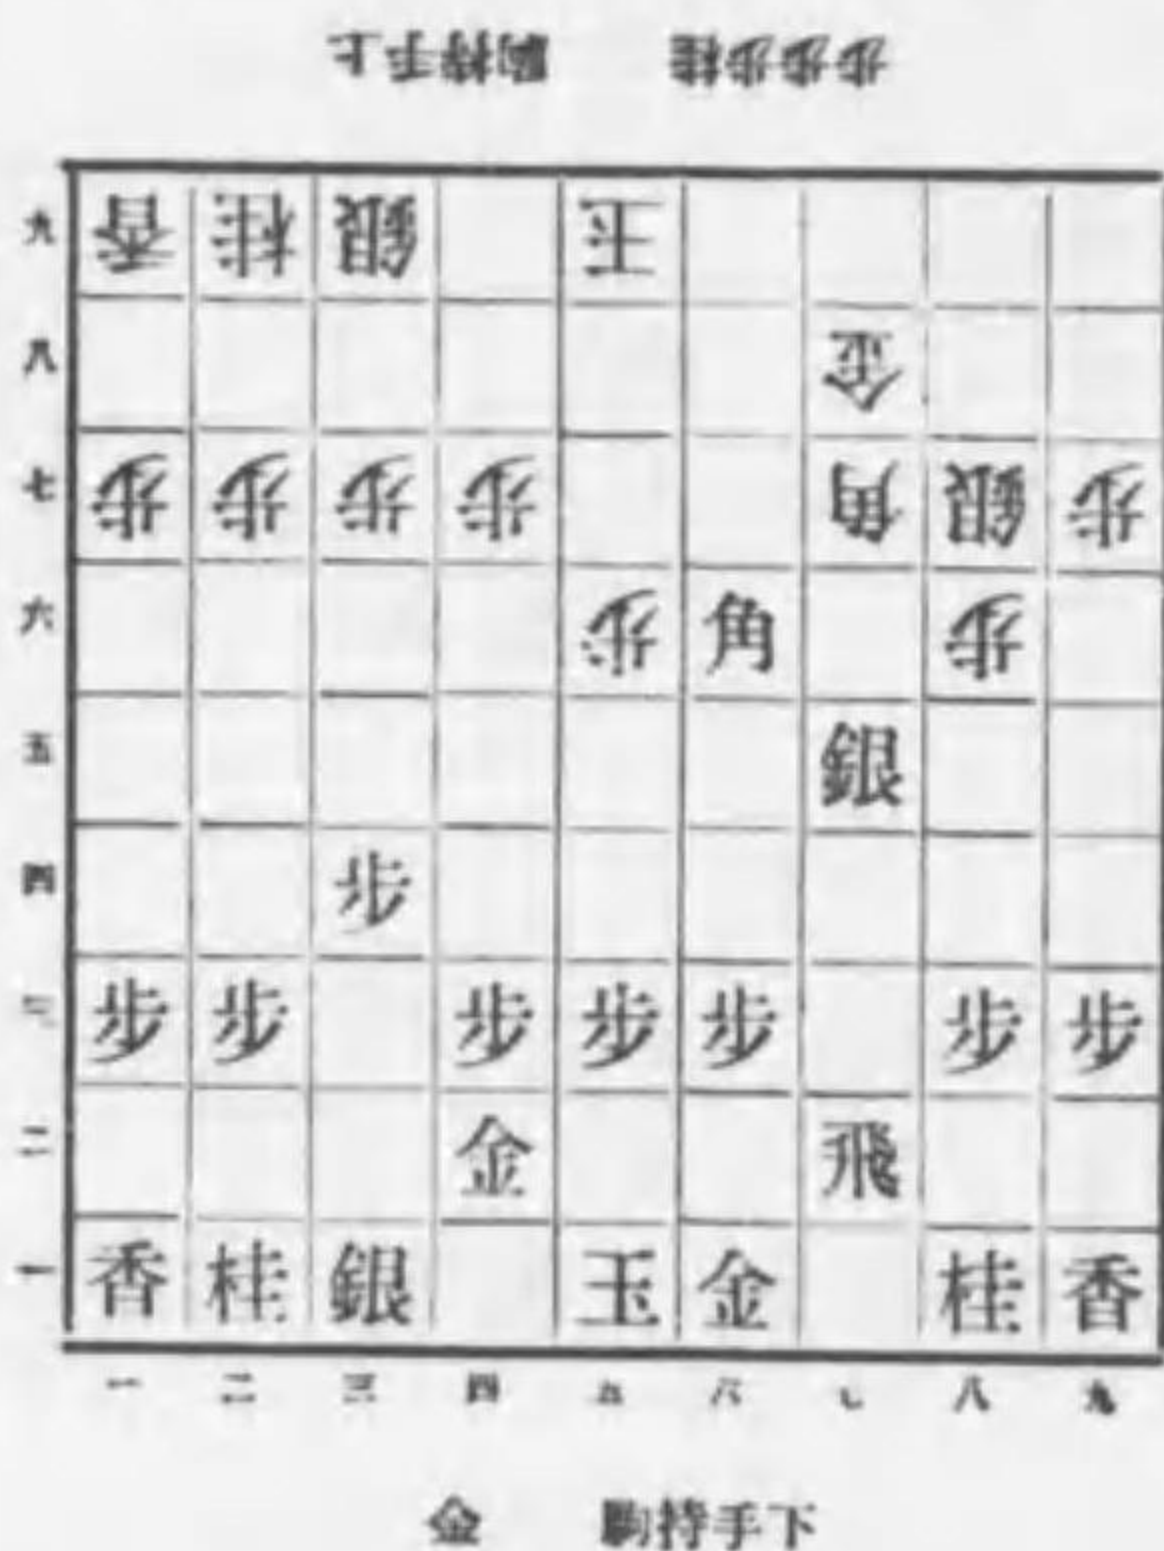 上手持駒 桂歩歩歩
九 香 桂 銀 王
八 金
七 歩 歩 歩 歩 角 銀 歩
六 歩 角 歩
五 銀
四 歩
三 歩 歩 歩 歩 歩 歩 歩
二 金 飛
一 香 桂 銀 玉 金 桂 香
一 二 三 四 五 六 七 八 九
下手持駒 金